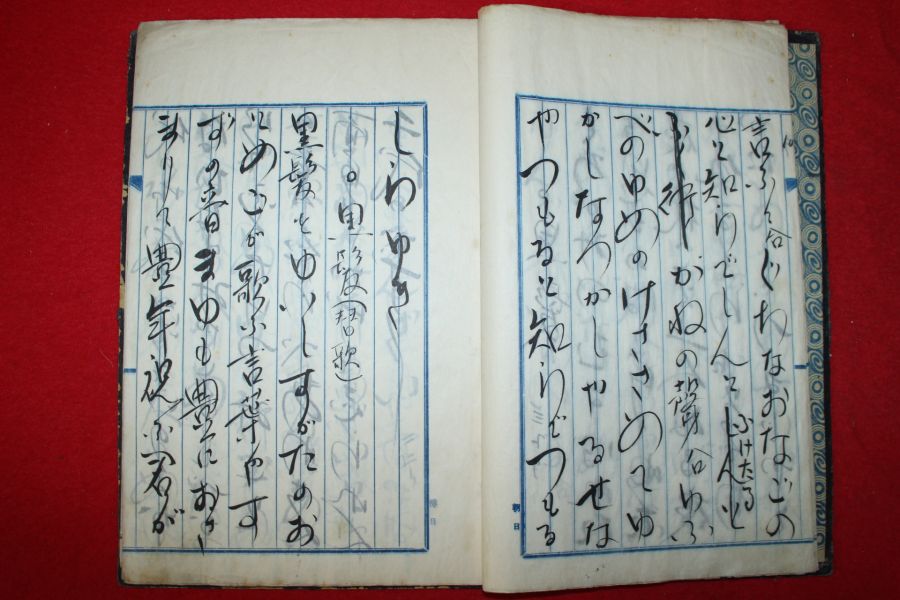 言ふて合ぐちなおなごの
心と知らでしんと
ふけたる
がねの聲合ゆふ
べのゆめのけささめてゆ
かしなつかしやるせな
やつもると知らでつもる
朝日
しらゆき
○黒髪(替歌)
黒髪とゆいしすがたのお
とめごが歌ふ言葉やす
ずの音まゆも豊におさ
まりて豊年祝ふ君が